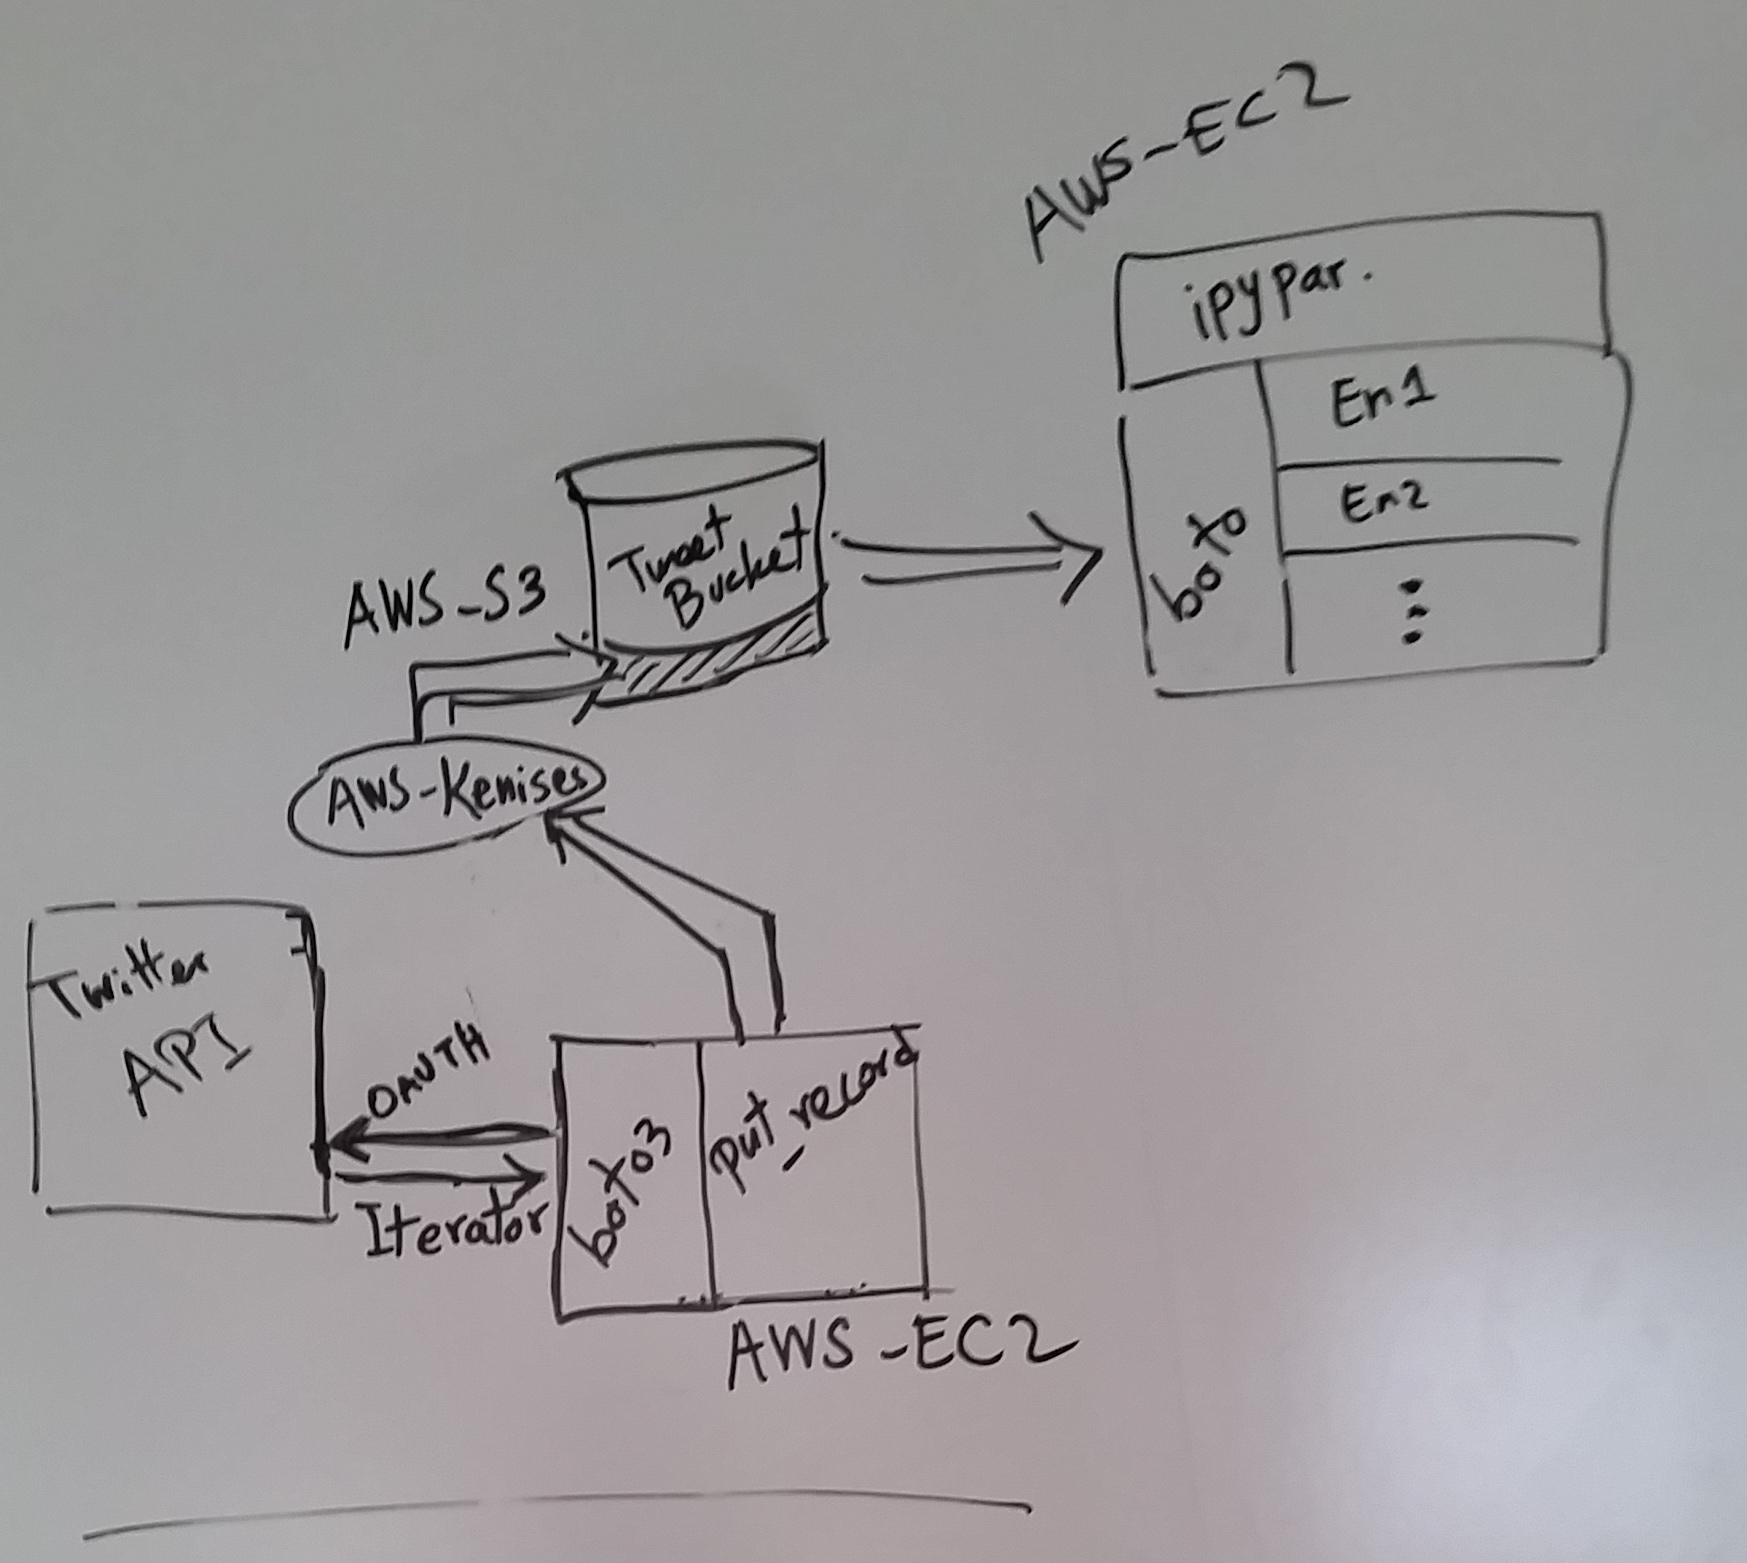 AWS-EC2
ipypar.
En1
En2
boto
Tweet
Bucket
AWS-S3
AWS-Kenises
Twitter
API
OAUTH
Iterator
boto3
put_record
AWS-EC2